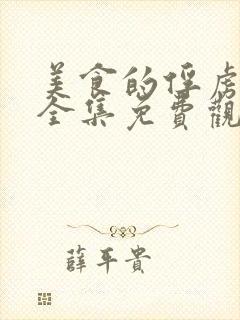 美食的俘虏
全集免費觀
薛平貴